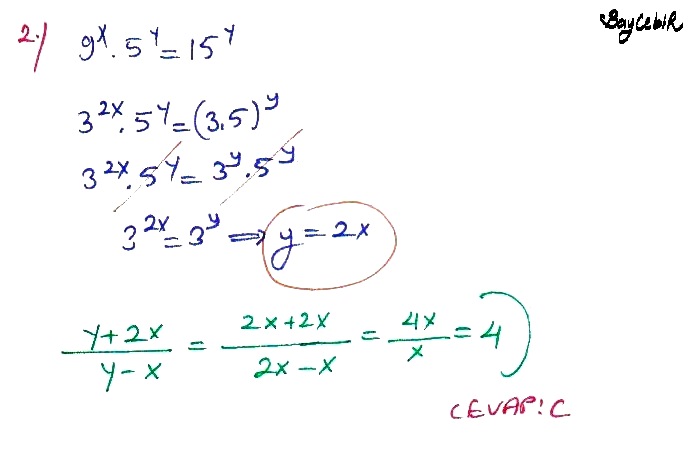 BayCebiR
2.) 9^x . 5^y = 15^y
3^2x . 5^y = (3.5)^y
3^2x . 5^y = 3^y . 5^y
3^2x = 3^y ⟹ y = 2x
y+2x / y-x = 2x+2x / 2x-x = 4x / x = 4
CEVAP: C